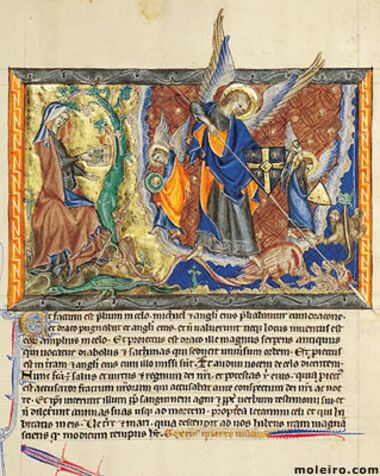 Et factum est prelium in celo. michael & angeli eius preliabantur cum dracone.
et draco pugnabat et angeli eius. et non valuerunt neque locus inventus est
eorum amplius in celo. Et proiectus est draco ille magnus serpens antiquus
qui vocatur diabolus & sathanas qui seducit universum orbem. Et proiectus
est in terram & angeli eius cum illo missi sunt. Et audivi vocem in celo dicentem
Nunc facta est salus et virtus & regnum dei nostri. et potestas christi eius. quia proiectus
est accusator fratrum nostrorum qui accusabat ante conspectum dei nostri die ac noc
te. Et ipsi vicerunt illum propter sanguinem agni & propter verbum testimonii sui. et
non dilexerunt animas suas usque ad mortem. propterea letamini celi et qui ha
bitatis in eis. Ve terre & mari. quia descendit ad vos habens iram magnam
sciens quod modicum tempus habet.
moleiro.com